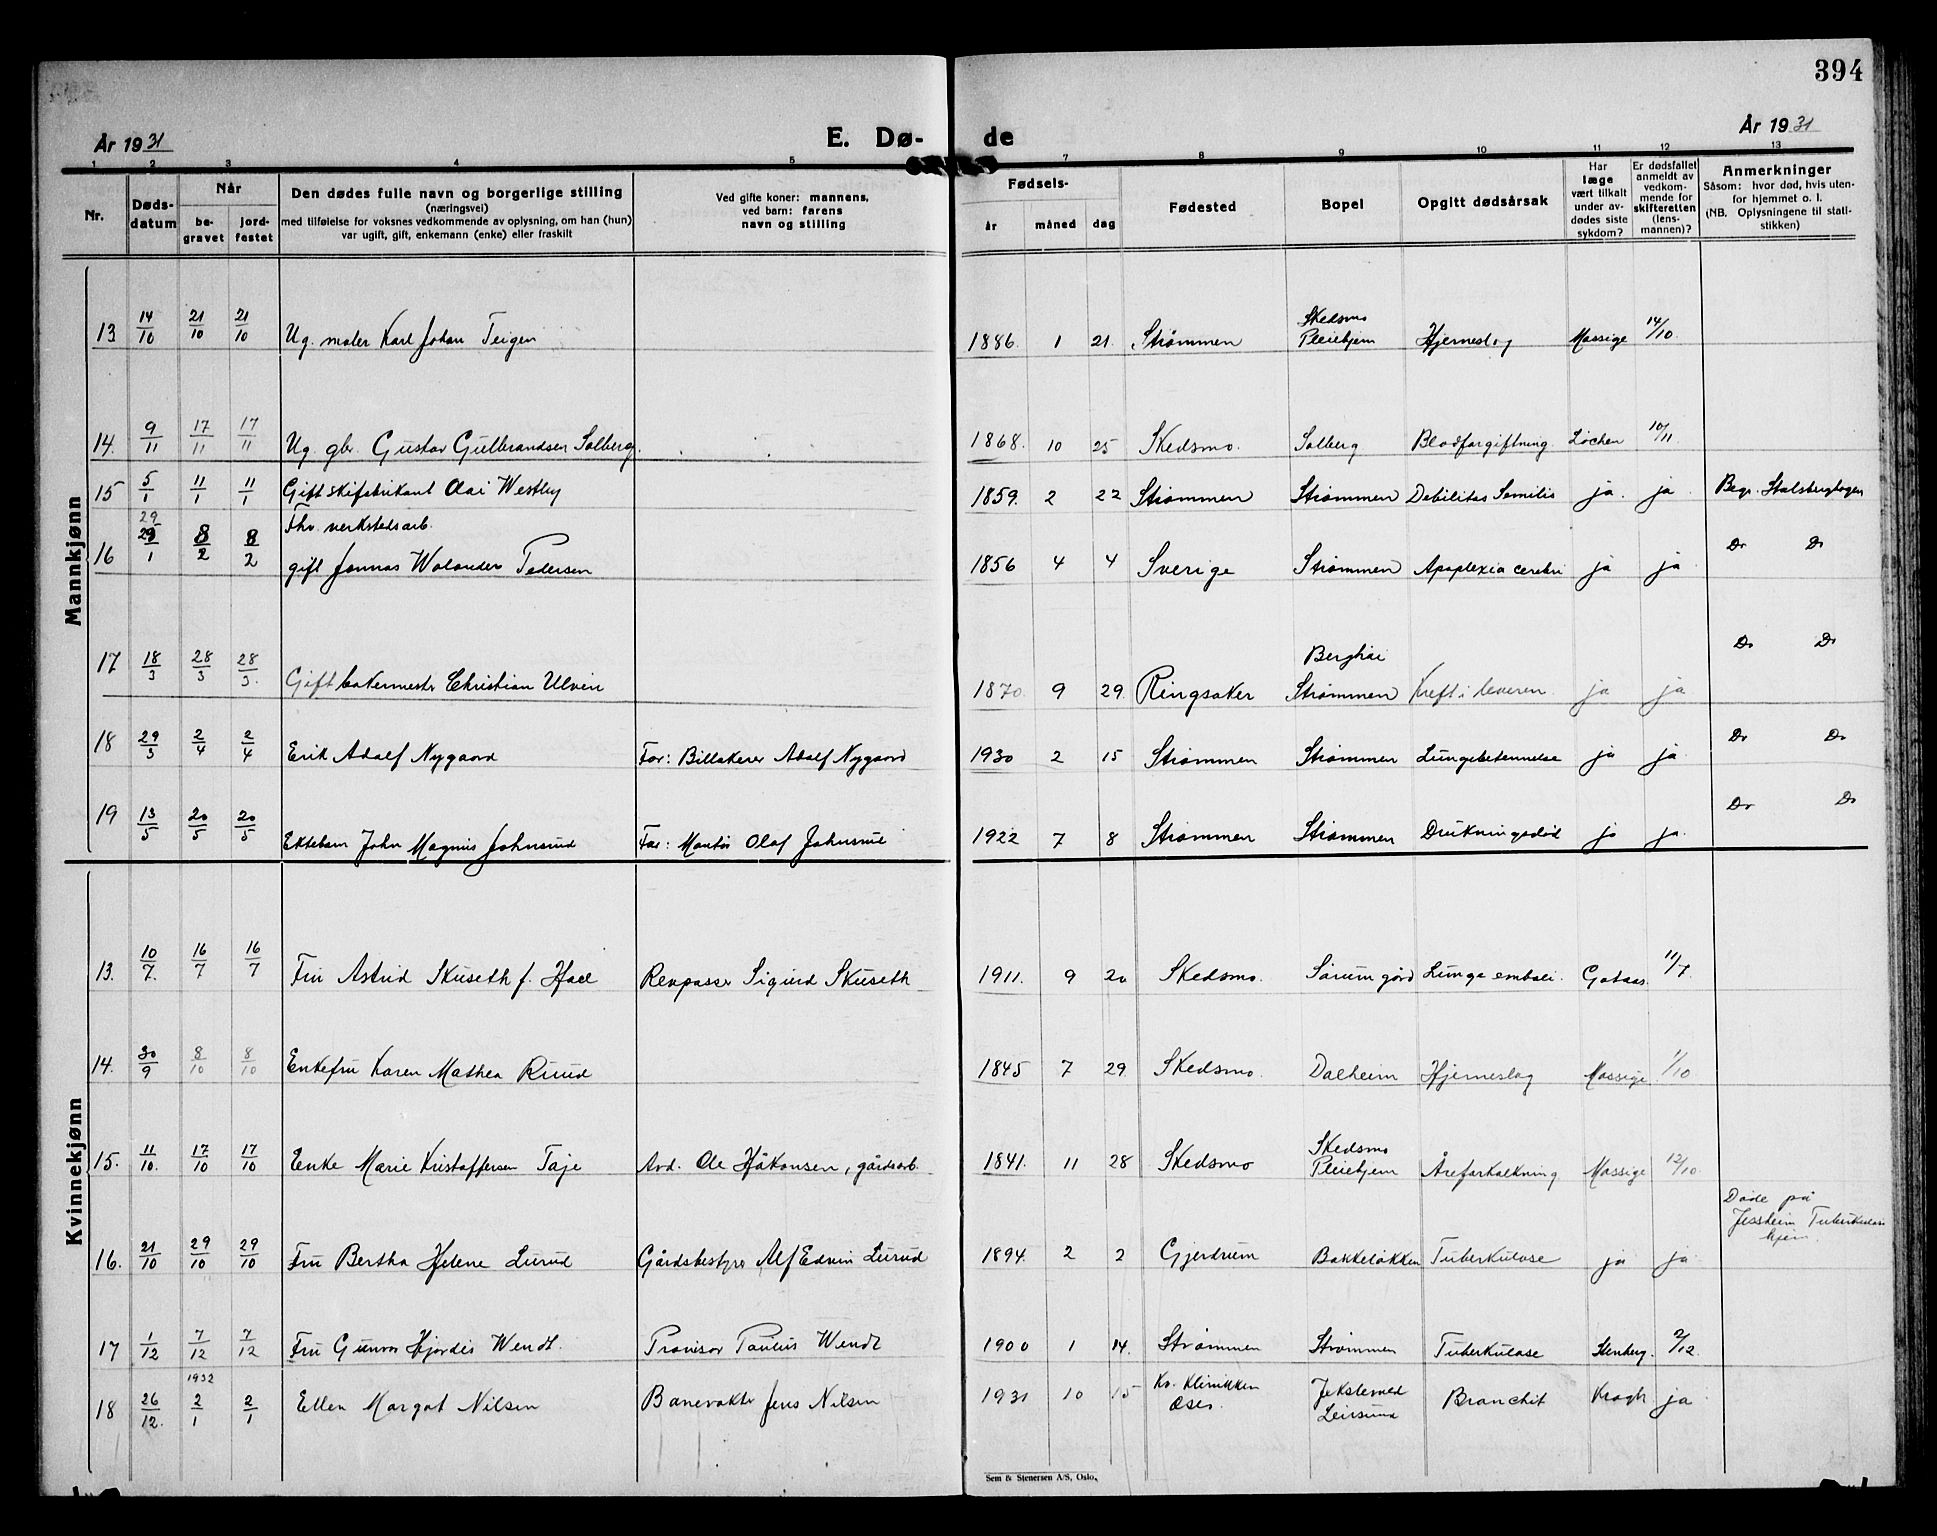 394
År 1931
E. Dø-
de
År 1931
1 2 3 4 5 7 8 9 10 11 12 13
Nr.
Døds-
datum
Når
be-
gravet
jord-
festet
Den dødes fulle navn og borgerlige stilling
(næringsvei)
med tilføielse for voksnes vedkommende av oplysning, om han (hun)
var ugift, gift, enkemann (enke) eller fraskilt
Ved gifte koner: mannens,
ved barn: farens
navn og stilling
Fødsels-
år måned dag
Fødested
Bopel
Opgitt dødsårsak
Har
læge
vært tilkalt
under av-
dødes siste
sykdom?
Er dødsfallet
anmeldt av
vedkom-
mende for
skifteretten
(lens-
mannen)?
Anmerkninger
Såsom: hvor død, hvis uten-
for hjemmet o. l.
(NB. Oplysningene til stati-
stikken)
Mannkjønn
13 14/10 21/10 21/10 Ug. maler Karl Johan Teigen 1886. 1 21. Strømmen Skedsmo Pleiehjem Hjerneslag Massige 14/10.
14. 9/11 17/11 17/11 Ug. gbr. Gustav Gulbrandsen Solberg. 1868. 10 25 Skedsmo. Solberg Blodforgiftning. Løchen 10/11
15 5/1 11/1 11/1 Gift skifabrikant Olai Westby 1859. 2 22 Strømmen Strømmen Debilitas Senilis ja. ja Begr. Stalsberghagen
16 29/1 8/2 8/2 Fhv. verkstedsarb.
gift Jonnas Wolander Pedersen 1856 4 4 Sverige Strømmen Apoplexia cerebri ja ja Do Do
17 18/3 28/3 28/3. Gift bakermester Christian Ulven 1870. 9 29. Ringsaker Berghøi Strømmen Kreft i leveren. ja ja Do Do
18 29/3 2/4 2/4 Erik Adolf Nygaard Far: Billakerer Adolf Nygaard 1930 2 15 Strømmen Strømmen Lungebetennelse ja ja. Do Do
19 13/5 20/5 20/5 Ektebarn John Magnus Johnsrud Far: Montør Olaf Johnsrud 1922 7 8 Strømmen Strømmen Drukningsdød ja ja. Do Do
Kvinnekjønn
13. 10/7. 16/7 16/7 Fru Astrid Skuseth f. Hoel Revpasser Sigurd Skuseth 1911. 9 20 Skedsmo. Sørum gård Lunge emboli. Gotaas. 11/7.
14. 30/9 8/10 8/10 Enkefru Karen Mathea Ruud 1845 7 29 Skedsmo. Dalheim Hjerneslag Massige 1/10.
15. 11/10. 17/10 17/10 Enke Marie Kristoffersen Taje Avd. Ole Håkonsen, gårdsarb. 1841. 11 28 Skedsmo Skedsmo Pleiehjem Åreforkalkning Massige 12/10.
16. 21/10 29/10 29/10 Fru Bertha Helene Lurud Gårdsbestyrer Alf Edvin Lurud 1894. 2 2 Gjerdrum Bakkeløkken Tuberkulose ja ja Døde på
Jessheim Tuberkulose
hjem.
17 1/12 7/12 7/12 Fru Gunvor Hjørdis Wendt. Provisor Paulus Wendt 1900 1 14. Strømmen Strømmen Tuberkulose Stenberg. 2/12.
1932
18 26/12. 2/1 2/1 Ellen Margot Nilsen Banevokter Jens Nilsen 1931 10 15 Kv. Klinikken Oslo. Leirsund Bronchit Kragh ja
Sem & Stenersen A/S, Oslo.